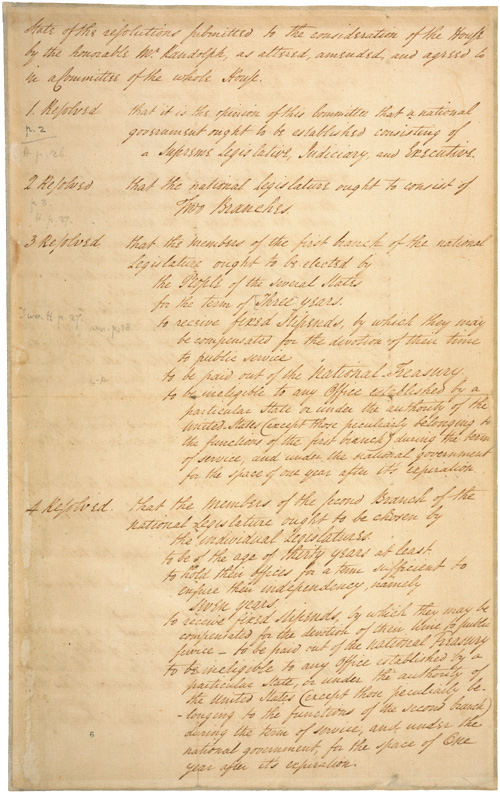 State of the resolutions submitted to the consideration of the House
by the honorable Mr. Randolph, as altered, amended, and agreed to
in a Committee of the whole House.
1. Resolved that it is the opinion of this Committee that a national
p. 2
government ought to be established consisting of
a Supreme Legislative, Judiciary, and Executive.
2 Resolved. that the national Legislature ought to consist of
Two Branches.
3 Resolved that the members of the first branch of the national
Legislature ought to be elected by
the People of the several States
for the term of Three years.
to receive fixed Stipends, by which they may
be compensated for the devotion of their time
to public service
to be paid out of the National Treasury.
to be ineligible to any Office established by a
particular State or under the authority of the
United States (except those peculiarly belonging to
the functions of the first branch) during the term
of service, and under the national government
for the space of one year after its expiration.
4 Resolved. that the members of the second Branch of the
national Legislature ought to be chosen by
the individual Legislatures.
to be of the age of thirty years at least.
to hold their offices for a term sufficient to
ensure their independency, namely
seven years.
to receive fixed Stipends, by which they may be
compensated for the devotion of their time to public
service - to be paid out of the National Treasury
to be ineligible to any Office established by a
particular State, or under the authority of
the United States (except those peculiarly be-
-longing to the functions of the second branch)
during the term of service, and under the
national government, for the space of One
year after its expiration.
6